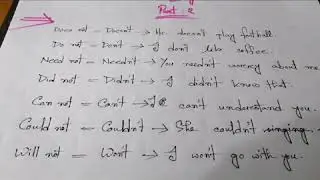 Part: 2
Does not = Doesn't → He doesn't play football
Do not = Don't → I don't like coffee.
Need not = Needn't → You needn't worry about me.
Did not = Didn't → I didn't know that.
Can not = Can't → I can't understand you.
Could not = Couldn't → She couldn't singing.
Will not = Won't → I won't go with you.